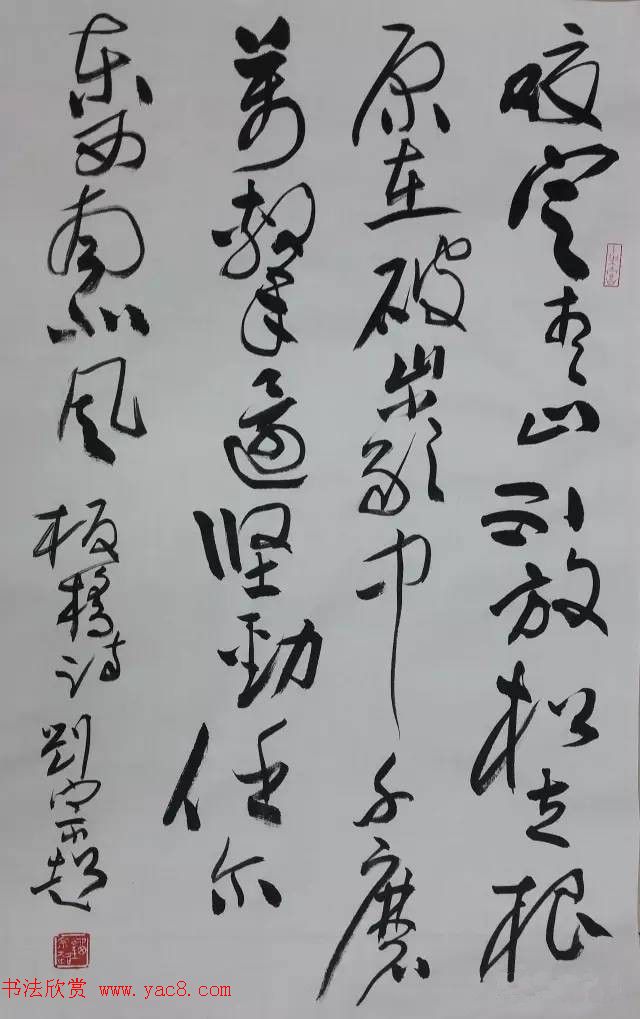 咬定青山不放松立根
原在破巖中千磨
萬擊還坚勁任尔
东西南北风 板橋诗 劉宗超
书法欣赏 www.yac8.com